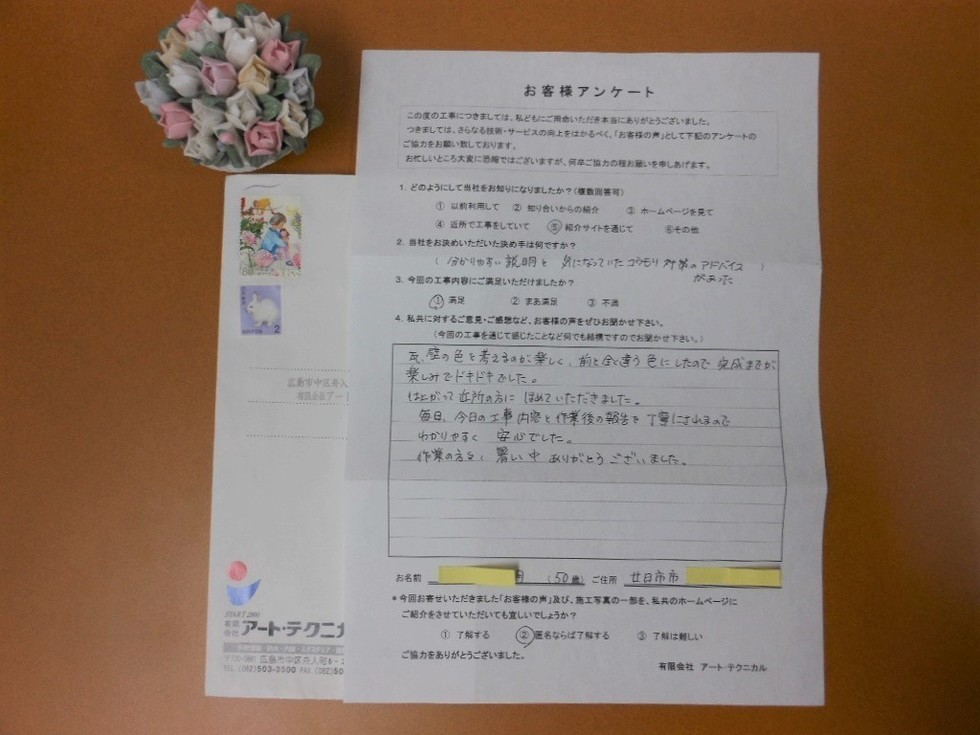 お客様アンケート
この度の工事につきましては、私どもにご用命いただき本当にありがとうございました。
つきましては、さらなる技術・サービスの向上をはかるべく、「お客様の声」として下記のアンケートの
ご協力をお願い致しております。
お忙しいところ大変に恐縮ではございますが、何卒ご協力の程お願いを申しあげます。
1. どのようにして当社をお知りになりましたか?(複数回答可)
① 以前利用して ② 知り合いからの紹介 ③ ホームページを見て
④ 近所で工事をしていて ⑤ 紹介サイトを通じて ⑥その他
2. 当社をお決めいただいた決め手は何ですか?
( 分かりやすい説明と 気になっていたコウモリ対策のアドバイス )
があった
3. 今回の工事内容にご満足いただけましたか?
① 満足 ② まあ満足 ③ 不満
4. 私共に対するご意見・ご感想など、お客様の声をぜひお聞かせ下さい。
(今回の工事を通じて感じたことなど何でも結構ですのでお聞かせ下さい。)
瓦、壁の色を考えるのが楽しく、前と全く違う色にしたので 完成するまでが
楽しみでドキドキでした。
仕上がって近所の方に ほめていただきました。
毎日、今日の工事内容と作業後の報告を丁寧にされるので
わかりやすく 安心でした。
作業の方々、暑い中 ありがとうございました。
お名前 (50歳) ご住所 廿日市市
* 今回お寄せいただきました「お客様の声」及び、施工写真の一部を、私共のホームページに
ご紹介をさせていただいても宜しいでしょうか?
① 了解する ② 匿名ならば了解する ③ 了解は難しい
ご協力をありがとうございました。
有限会社 アート・テクニカル
80
NIPPON 2
広島市中区舟入
有限会社アート
START 2000
有限会社 アート・テクニカ
広島市中区舟入町6-
TEL (082)503-3500 FAX (082)50